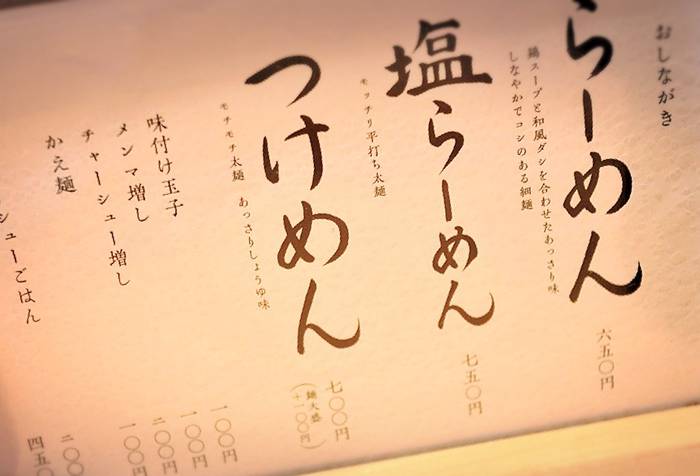 おしながき
らーめん
鶏スープと和風ダシを合わせたあっさり味
しなやかでコシのある細麺
六五〇円
塩らーめん
モッチリ平打ち太麺
七五〇円
つけめん
モチモチ太麺 あっさりしょうゆ味
七〇〇円
(麺大盛
+一〇〇円)
味付け玉子
一〇〇円
メンマ増し
一〇〇円
チャーシュー増し
二〇〇円
一〇〇円
かえ麺
二〇〇
シューごはん
四五〇